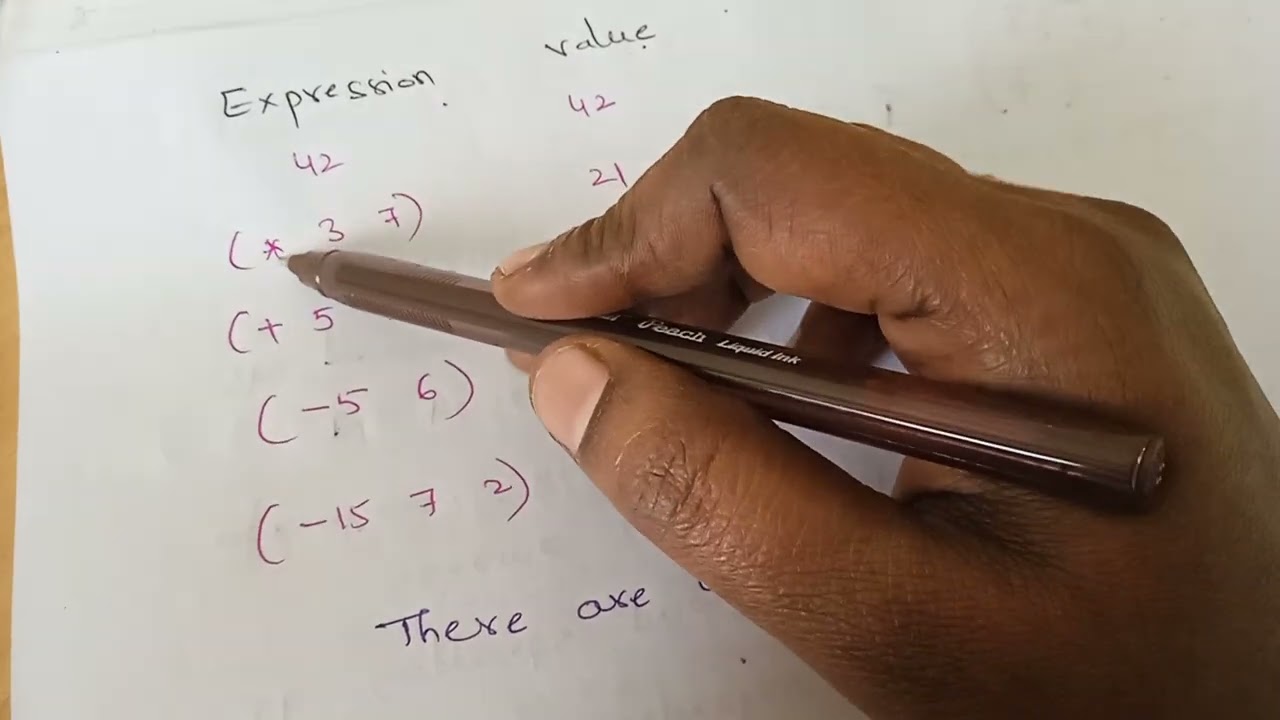 Expression value
42 42
(* 3 7) 21
(+ 5
(-5 6)
(-15 7 2)
There are
Peach Liquid Ink